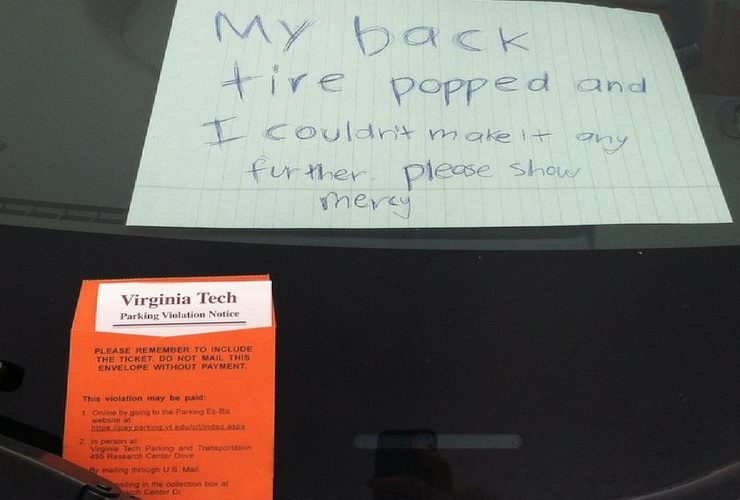 My back
tire popped and
I couldn't make it any
further. please show
mercy
Virginia Tech
Parking Violation Notice
PLEASE REMEMBER TO INCLUDE
THE TICKET. DO NOT MAIL THIS
ENVELOPE WITHOUT PAYMENT.
This violation may be paid:
1. Online by going to the Parking Ez-Biz
website at
2. In person at
Virginia Tech Parking and Transportation
455 Research Center Drive
By mailing through U.S. Mail.
in the collection box at
Center Dr.